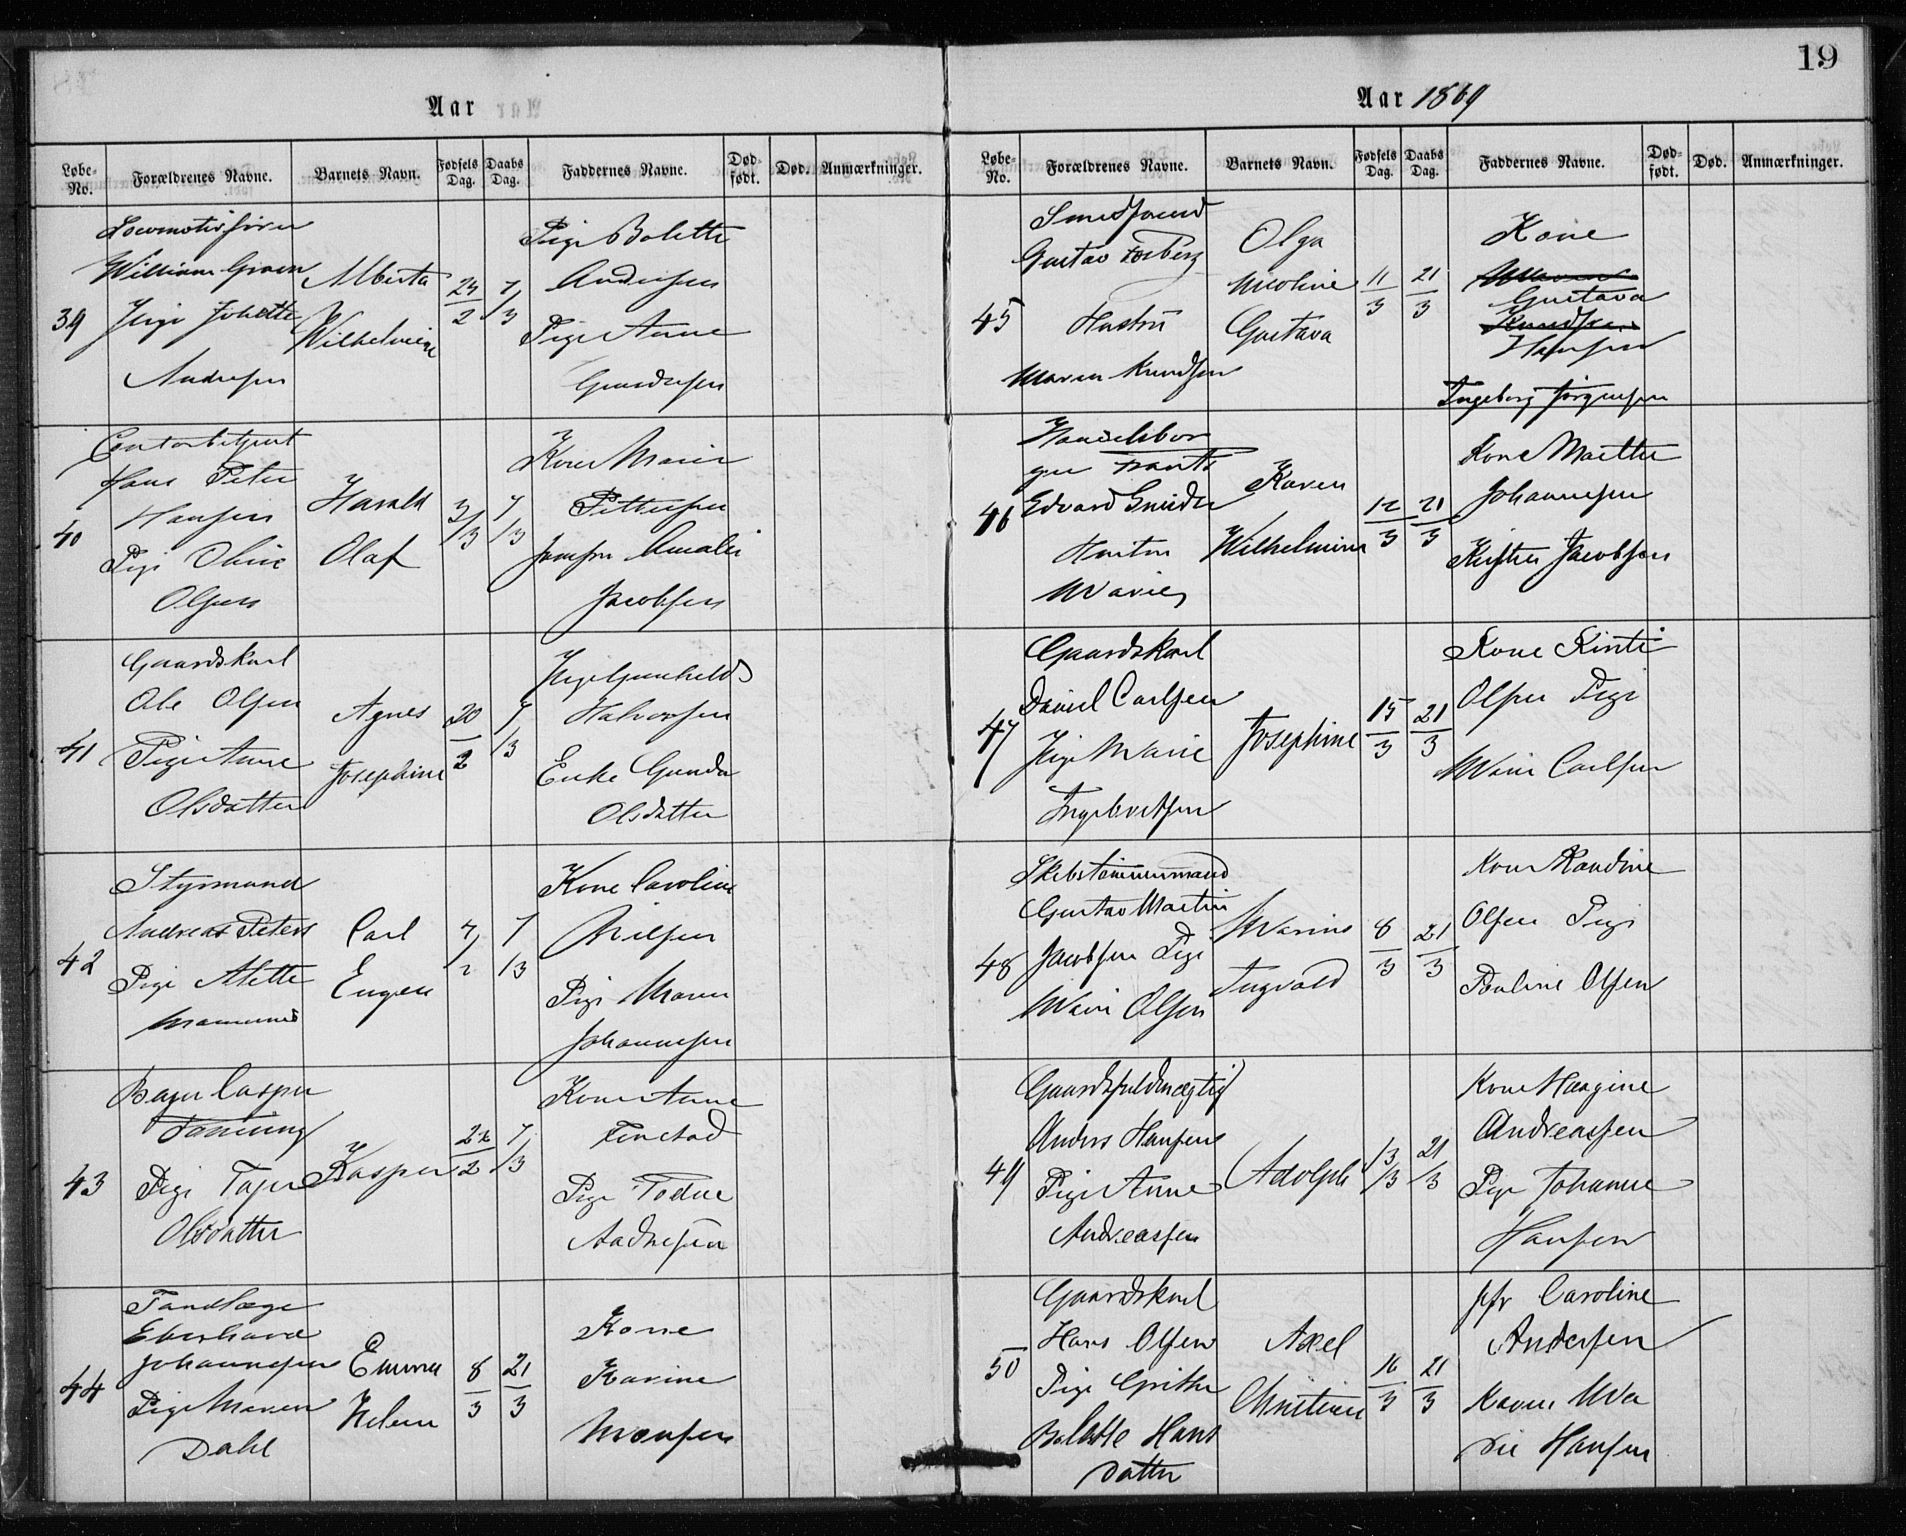 19
Aar
Løbe-No. Forældrenes Navne. Barnets Navn. Fødsels Dag. Daabs Dag. Faddernes Navne. Død-født. Død. Anmærkninger.
39
Locomotivfører
William Green
Pige Johette
Andresen
Alberta
Wilhelmine
24/2
7/3
Pige Bolette
Andersen
Pige Anne
Gundersen
40
Contorbetjent
Hans Peter
Hansen
Pige Oline
Olsen
Harald
Olaf
3/3
7/3
Kone Marie
Pettersen
Jomfru Amalie
Jacobsen
41
Gaardskarl
Ole Olsen
Pige Anne
Olsdatter
Agnes
Josephine
20/2
7/3
Pige Gunhild
Halvorsen
Enke Gunda
Olsdatter
42
Styrmand
Andreas Peters
Pige Alette
Carl
Eugen
7/2
7/3
Kone Caroline
Nilsen
Pige Maren
Johannesen
43
Bager Casper
Pige
Olsdatter
Kasper
7/3
Kone Anne
Finstad
Pige Todne
Andresen
44
Tandlæge
Eberhard
Johannesen
Pige Maren
Dahl
Emma
Helene
8/3
21/3
Kone
Karine
Monsen
Aar 1869
Løbe-No. Forældrenes Navne. Barnets Navn. Fødsels Dag. Daabs Dag. Faddernes Navne. Død-født. Død. Anmærkninger.
45
Smedsvend
Gustav Forberg
Hustru
Maren Knudsen
Olga
Nicoline
Gustava
11/3
21/3
Kone
Maren
Gustava
Knudsen
Hansen
Ingeborg Jørgensen
46
Handelsbor
ger Frants
Edvard
Hustru
Marie
Karen
Wilhelmine
12/3
21/3
Kone Marthe
Johannesen
Jacobsen
47
Gaardskarl
Daniel Carlsen
Pige Marie
Ingebretsen
Josephine
15/3
21/3
Kone Kirsti
Olsen Pige
Marie Carlsen
48
Skibstømmermand
Gustav Martin
Jacobsen Pige
Marie Olsen
Marius
Ingvald
8/3
21/3
Kone Randine
Olsen Pige
Pauline Olsen
49
Gaardsfuldmægtig
Anders Hansen
Pige Anne
Andreassen
Adolph
13/3
21/3
Kone Hargine
Andreassen
Pige Johanne
Hansen
50
Gaardskarl
Hans Olsen
Pige Grithe
Bolette Hans
datter
Axel
Christian
16/3
21/3
jfr Caroline
Andersen
Karen Ma
rie Hansen